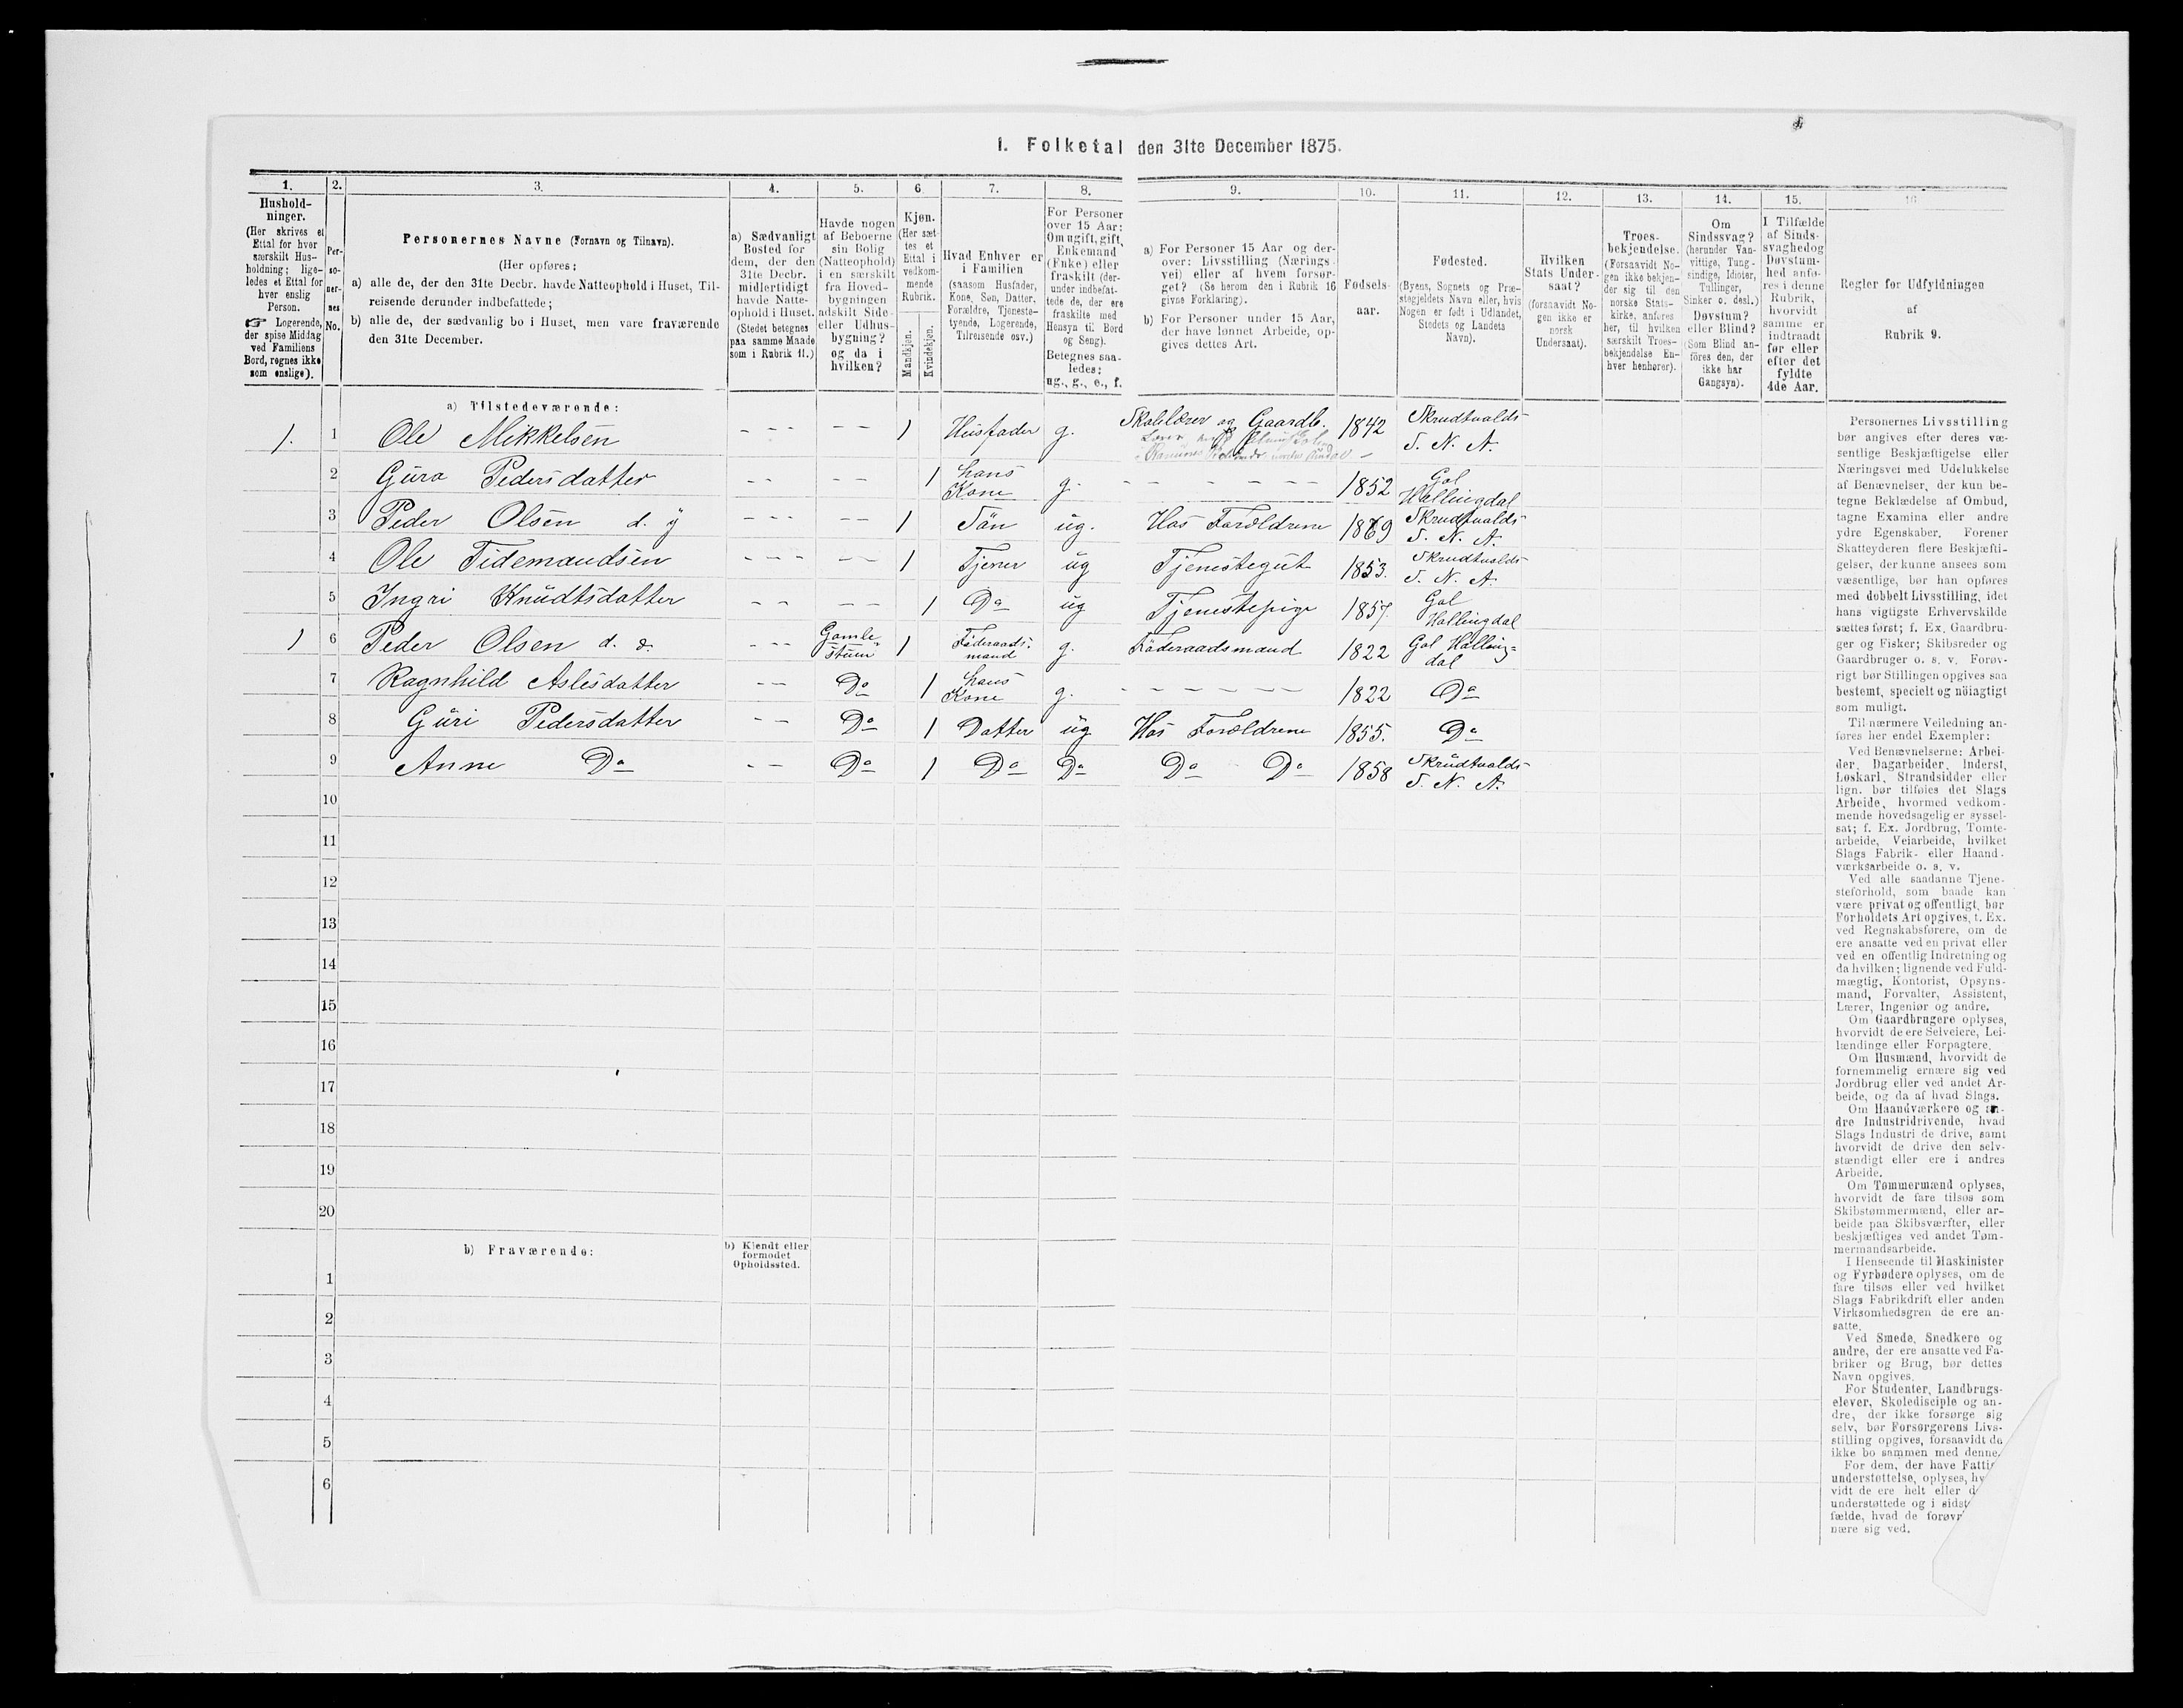 1. Folketal den 31te December 1875.
1.
Hushold-
ninger.
(Her skrives et
Ettal for hver
særskilt Hus-
holdning; lige-
ledes et Ettal for
hver enslig
Person.
☞ Logerende,
der spise Middag
ved Familiens
Bord, regnes ikke
som enslige).
2.
Per-
so-
ner-
nes
No.
3.
Personernes Navne (Fornavn og Tilnavn).
(Her opføres:
a) alle de, der den 31te Decbr. havde Natteophold i Huset, Til-
reisende derunder indbefattede;
b) alle de, der sædvanlig bo i Huset, men vare fraværende
den 31te December.
4.
a) Sædvanligt
Bosted for
dem, der den
31te Decbr.
midlertidigt
havde Natte-
ophold i Huset.
(Stedet betegnes
paa samme Maade
som i Rubrik 11.)
5.
Havde nogen
af Beboerne
sin Bolig
(Natteophold)
i en særskilt
fra Hoved-
bygningen
adskilt Side-
eller Udhus-
bygning?
og da i
hvilken?
6.
Kjøn.
(Her sæt-
tes et
Ettal i
vedkom-
mende
Rubrik.
Mandkjøn.
Kvindekjøn.
7.
Hvad Enhver er
i Familien
(saasom Husfader,
Kone, Søn, Datter,
Forældre, Tjeneste-
tyende, Logerende,
Tilreisende osv.)
8.
For Personer
over 15 Aar:
Om ugift, gift,
Enkemand
(Enke) eller
fraskilt (der-
under indbefat-
tede de, der ere
fraskilte med
Hensyn til Bord
og Seng).
Betegnes saa-
ledes:
ug., g., e., f.
9.
a) For Personer 15 Aar og der-
over: Livsstilling (Nærings-
vei) eller af hvem forsør-
get? (Se herom den i Rubrik 16
givne Forklaring).
b) For Personer under 15 Aar,
der have lønnet Arbeide, op-
gives dettes Art.
10.
Fødsels-
aar.
11.
Fødested.
(Byens, Sognets og Præ-
stegjeldets Navn eller, hvis
Nogen er født i Udlandet,
Stedets og Landets
Navn).
12.
Hvilken
Stats Under-
saat?
(forsaavidt No-
gen ikke er
norsk
Undersaat).
13.
Troes-
bekjendelse.
(Forsaavidt No-
gen ikke bekjen-
der sig til den
norske Stats-
kirke, anføres
her, til hvilken
særskilt Troes-
bekjendelse En-
hver henhører).
14.
Om
Sindssvag?
(herunder Van-
vittige, Tung-
sindige, Idioter,
Tullinger,
Sinker o. desl.)
Døvstum?
eller Blind?
(Som Blind an-
føres den, der
ikke har
Gangsyn).
15.
I Tilfælde
af Sinds-
svaghed og
Døvstum-
hed anfø-
res i denne
Rubrik,
hvorvidt
samme er
indtraadt
før eller
efter det
fyldte
4de Aar.
16
Regler for Udfyldningen
af
Rubrik 9.
a) Tilstedeværende:
1. 1 Ole Mikkelsen - - - - - 1 Husfader g. Skolelærer og Gaardb. 1842 Skrudtvalds
S. N. A.
2 Guro Pedersdatter - - - - 1 hans Kone g. - - - - - - 1852 Gol
Hallingdal
3 Peder Olsen d. y - - - - 1 Sön ug. Hos Forældrene 1869 Skrudtvalds
S. N. A.
4 Ole Tidemandsen - - - - - 1 Tjener ug Tjenestegut 1853. Skrudtvalds
S. N. A.
5 Ingri Knudtsdatter - - - - 1 Do ug Tjenestepige 1857. Gol
Hallingdal
1 6 Peder Olsen d. æ. - - - Gamle stuen 1 Föderaads-mand g. Föderaadsmand 1822 Gol Halling=
dal
7 Ragnhild Aslesdatter - - Do 1 hans Kone g. - - - - - - 1822 Do
8 Guri Pedersdatter - - Do 1 Datter ug Hos Forældrene 1855. Do
9 Anne Do - - Do 1 Do Do Do Do 1858 Skrudtvalds
S. N. A.
10
11
12
13
14
15
16
17
18
19
20
b) Fraværende:
b) Kjendt eller
formodet
Opholdssted.
1
2
3
4
5
6
Personernes Livsstilling
bør angives efter deres væ-
sentlige Beskjæftigelse eller
Næringsvei med Udelukkelse
af Benævnelser, der kun be-
tegne Beklædelse af Ombud,
tagne Examina eller andre
ydre Egenskaber. Forener
Skatteyderen flere Beskjæfti-
gelser, der kunne ansees som
væsentlige, bør han opføres
med dobbelt Livsstilling, idet
hans vigtigste Erhvervskilde
sættes først; f. Ex. Gaardbru-
ger og Fisker; Skibsreder og
Gaardbruger o. s. v. Forøv-
rigt bør Stillingen opgives saa
bestemt, specielt og nöiagtigt
som muligt.
Til nærmere Veiledning an-
føres her endel Exempler:
Ved Benævnelserne: Arbei-
der, Dagarbeider, Inderst,
Løskarl, Strandsidder eller
lign. bør tilføies det Slags
Arbeide, hvormed vedkom-
mende hovedsagelig er syssel-
sat; f. Ex. Jordbrug, Tomte-
arbeide, Veiarbeide, hvilket
Slags Fabrik- eller Haand-
værksarbeide o. s. v.
Ved alle saadanne Tjene-
steforhold, som baade kan
være privat og offentligt, bør
Forholdets Art opgives, t. Ex.
ved Regnskabsførere, om de
ere ansatte ved en privat eller
ved en offentlig Indretning og
da hvilken; lignende ved Fuld-
mægtig, Kontorist, Opsyns-
mand, Forvalter, Assistent,
Lærer, Ingeniør og andre.
Om Gaardbrugere oplyses,
hvorvidt de ere Selveiere, Lei-
lændinge eller Forpagtere.
Om Husmænd, hvorvidt de
fornemmelig ernære sig ved
Jordbrug eller ved andet Ar-
beide, og da af hvad Slags.
Om Haandværkere og an-
dre Industridrivende, hvad
Slags Industri de drive, samt
hvorvidt de drive den selv-
stændigt eller ere i andres
Arbeide.
Om Tømmermænd oplyses,
hvorvidt de fare tilsøs som
Skibstømmermænd, eller ar-
beide paa Skibsværfter, eller
beskjæftiges ved andet Tøm-
mermandsarbeide.
I Henseende til Maskinister
og Fyrbødere oplyses, om de
fare tilsøs eller ved hvilket
Slags Fabrikdrift eller anden
Virksomhedsgren de ere an-
satte.
Ved Smede, Snedkere og
andre, der ere ansatte ved Fa-
briker og Brug, bør dettes
Navn opgives.
For Studenter, Landbrugs-
elever, Skoledisciple og an-
dre, der ikke forsørge sig
selv, bør Forsørgerens Livs-
stilling opgives, forsaavidt de
ikke bo sammen med denne.
For dem, der have Fattig
understøttelse, oplyses, hv
vidt de ere helt eller d
understøttede og i sidst
fælde, hvad de forøv
nære sig ved.